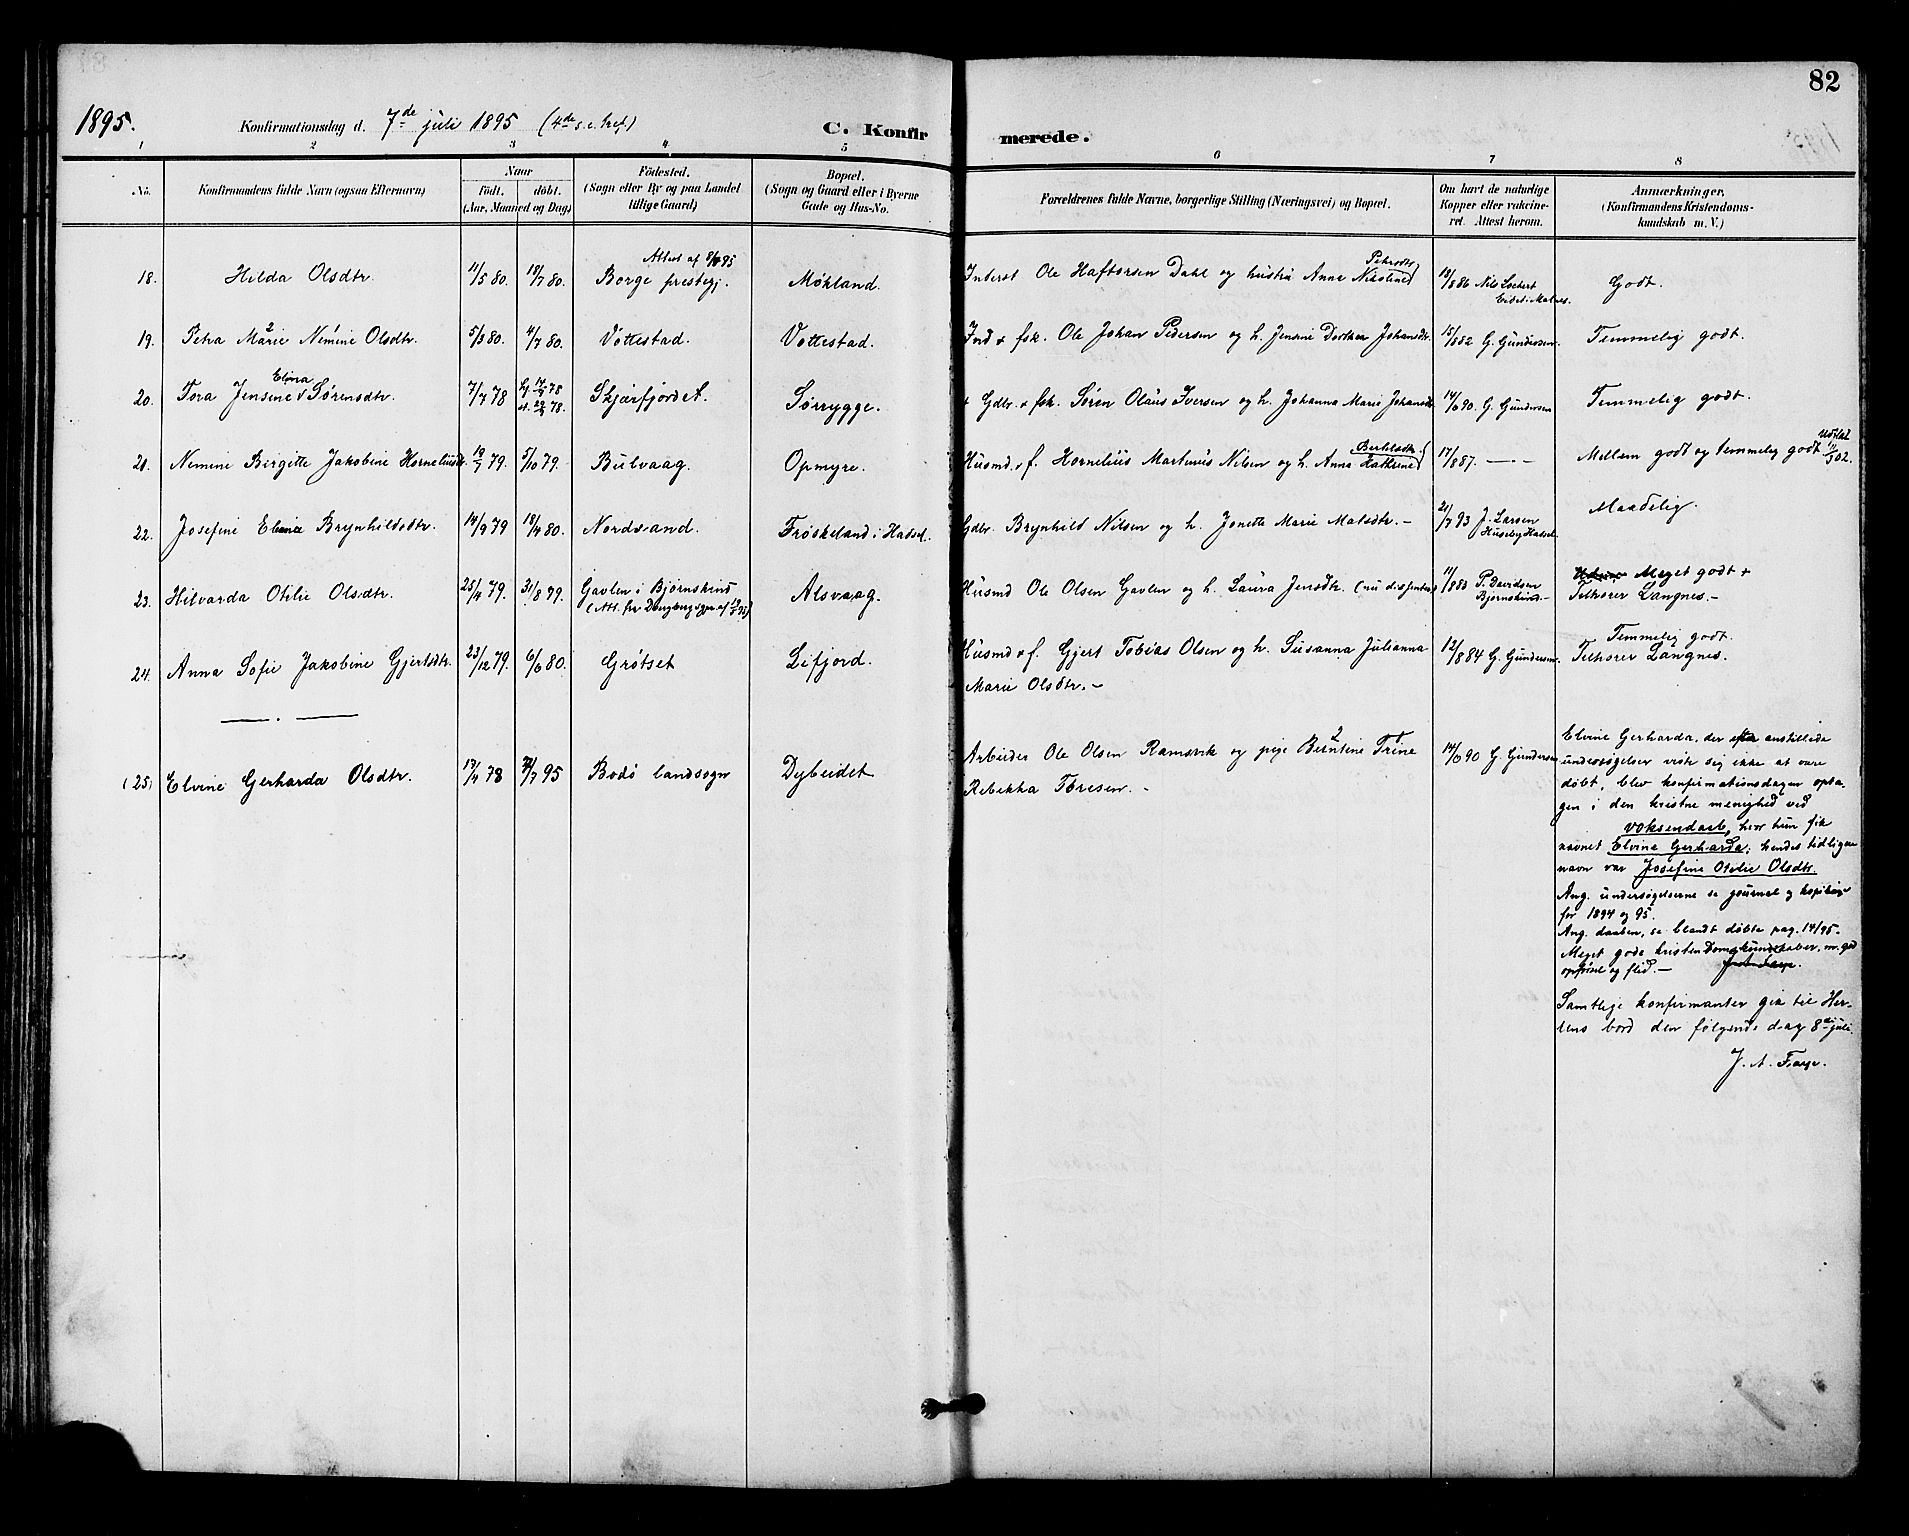 82
1895.
Konfirmationsdag d. 7de juli 1895 (4de s. e. tref.)
C. Konfirmerede.
1 2 3 4 5 6 7 8
No.
Konfirmandens fulde Navn (ogsaa Efternavn)
Naar
födt. döbt.
(Aar, Maaned og Dag)
Födested.
(Sogn eller By og paa Landet
tillige Gaard)
Bopæl.
(Sogn og Gaard eller i Byerne
Gade og Hus-No.
Forældrenes fulde Navne, borgerlige Stilling (Næringsvei) og Bopæl.
Om havt de naturlige
Kopper eller vakcine-
ret. Attest herom.
Anmærkninger.
(Konfirmandens Kristendoms-
kundskab m. V.)
18. Hilda Olsdtr. 11/5 80. 18/7 80. Borge prestegj. Møkland. Inderst Ole Haftorsen Dahl og hustru Anna Nikoline Pedersdtr. Nils Lockert Godt.
19. Petra Marie Nemine Olsdtr. 5/3 80. 4/7 80. Vottestad. Vottestad. Ind + fsk. Ole Johan Pedersen og h. Jensine Dorthea Johansdtr. 15/882 G. Gundersen. Temmelig godt.
20. Tora Jensine Elina Sørensdtr. 7/7 78 Skjærfjordet. Sørrygge. + Gdbr. + fsk. Søren Olaus Iversen og h. Johanna Marie Johansdtr. G. Gundersen Temmelig godt.
21. Nemine Birgitte Jakobine Kornelius dtr. 79. 5/10 79. Bulvaag. Opmyre. Husmd. + f. Kornelius Martinus Nilsen og h. Anna Kathrine 17/887. —.— Mellem godt og temmelig godt
22. Josefine Elvina Brynhildsdtr. 14/9 79 18/4 80. Nordsand. Frøskeland i Hadsel. Gdbr. Brynhild Nilsen og h. Jonette Marie Matsdtr. – 21/7 93 J. Larsen Maadelig.
Huseby Hadsel
23. Hilvarda Otilie Olsdtr. 25/4 79. 31/8 79. Gavlen i Bjørnskind Alsvaag. Husmd Ole Olsen Gavlen og h. Laura Jensdtr. (nu dissenter) P. Davidsen Meget godt +
Bjørnskind.– Tilhører Langnes.–
24. Anna Sofie Jakobine Gjertsdtr. 23/12 79. 6/6 80. Grøtset Lifjord. Husmd + f. Gjert Tobias Olsen og h. Susanna Julianna 12/884 G. Gundersen. Temmelig godt.
Marie Olsdtr. – Tilhører Langnes.
(25) Elvine Gerharda Olsdtr. 17/4 78 95 Bodø landsogn Dybeidet Arbeider Ole Olsen Ramsvik og pige Berntine Trine G. Gundersen
Rebekka Toresen. –
Elvine Gerharda, der efter anstillede
undersøgelser viste sig ikke at være
døbt, blev konfirmationsdagen opta-
gen i den kristne menighed ved
voksendaab, hvor hun fik
navnet Elvine Gerharda; hendes tidligere
navn var Josefine Otilie Olsdtr.
Ang. undersøgelserne se journal og kopibog
for 1894 og 95.
Ang. daaben, se blandt døbte pag. 14/95.
Meget gode kristendomskundskaber, m. god
opførsel og flid.–
Samtlige konfirmanter gik til Her-
rens bord den følgende dag 8de juli.